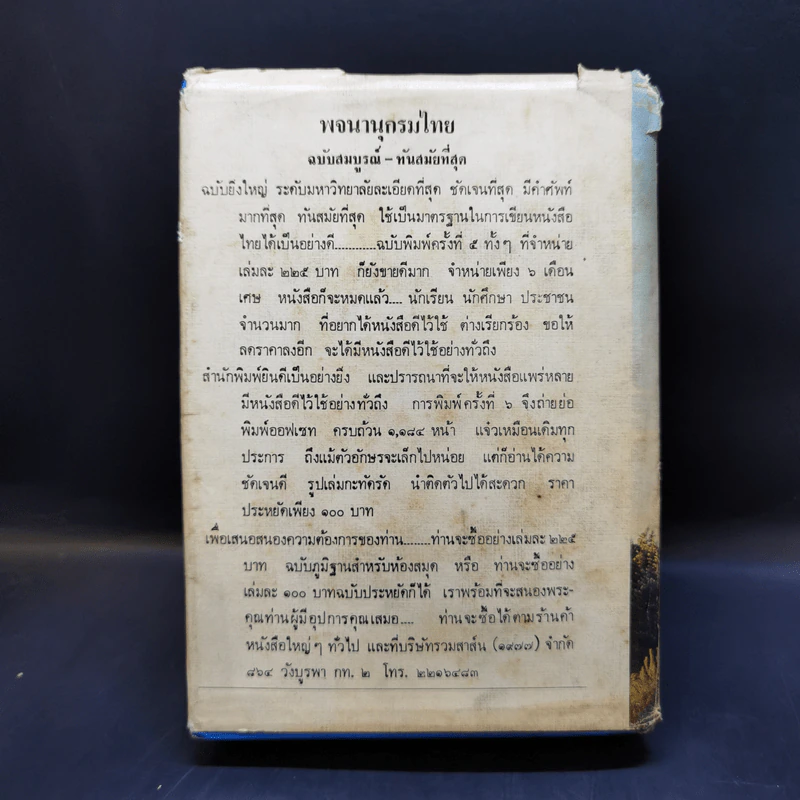 พจนานุกรมไทย
ฉบับสมบูรณ์ - ทันสมัยที่สุด
ฉบับยิ่งใหญ่ ระดับมหาวิทยาลัยละเอียดที่สุด ชัดเจนที่สุด มีคำศัพท์
มากที่สุด ทันสมัยที่สุด ใช้เป็นมาตรฐานในการเขียนหนังสือ
ไทยได้เป็นอย่างดี............ฉบับพิมพ์ครั้งที่ ๕ ทั้งๆ ที่จำหน่าย
เล่มละ ๒๒๕ บาท ก็ยังขายดีมาก จำหน่ายเพียง ๖ เดือน
เศษ หนังสือก็จะหมดแล้ว.... นักเรียน นักศึกษา ประชาชน
จำนวนมาก ที่อยากได้หนังสือดีไว้ใช้ ต่างเรียกร้อง ขอให้
ลดราคาลงอีก จะได้มีหนังสือดีไว้ใช้อย่างทั่วถึง
สำนักพิมพ์ยินดีเป็นอย่างยิ่ง และปรารถนาที่จะให้หนังสือแพร่หลาย
มีหนังสือดีไว้ใช้อย่างทั่วถึง การพิมพ์ครั้งที่ ๖ จึงถ่ายย่อ
พิมพ์ออฟเซท ครบถ้วน ๑,๑๘๔ หน้า แจ๋วเหมือนเดิมทุก
ประการ ถึงแม้ตัวอักษรจะเล็กไปหน่อย แต่ก็อ่านได้ความ
ชัดเจนดี รูปเล่มกะทัดรัด นำติดตัวไปได้สะดวก ราคา
ประหยัดเพียง ๑๐๐ บาท
เพื่อเสนอสนองความต้องการของท่าน........ท่านจะซื้ออย่างเล่มละ ๒๒๕
บาท ฉบับภูมิฐานสำหรับห้องสมุด หรือ ท่านจะซื้ออย่าง
เล่มละ ๑๐๐ บาทฉบับประหยัดก็ได้ เราพร้อมที่จะสนองพระ-
คุณท่านผู้มีอุปการคุณเสมอ.... ท่านจะซื้อได้ตามร้านค้า
หนังสือใหญ่ๆ ทั่วไป และที่บริษัทรวมสาส์น (๑๙๗๗) จำกัด
๘๖๔ วังบูรพา กท. ๒ โทร. ๒๒๑๖๔๘๓